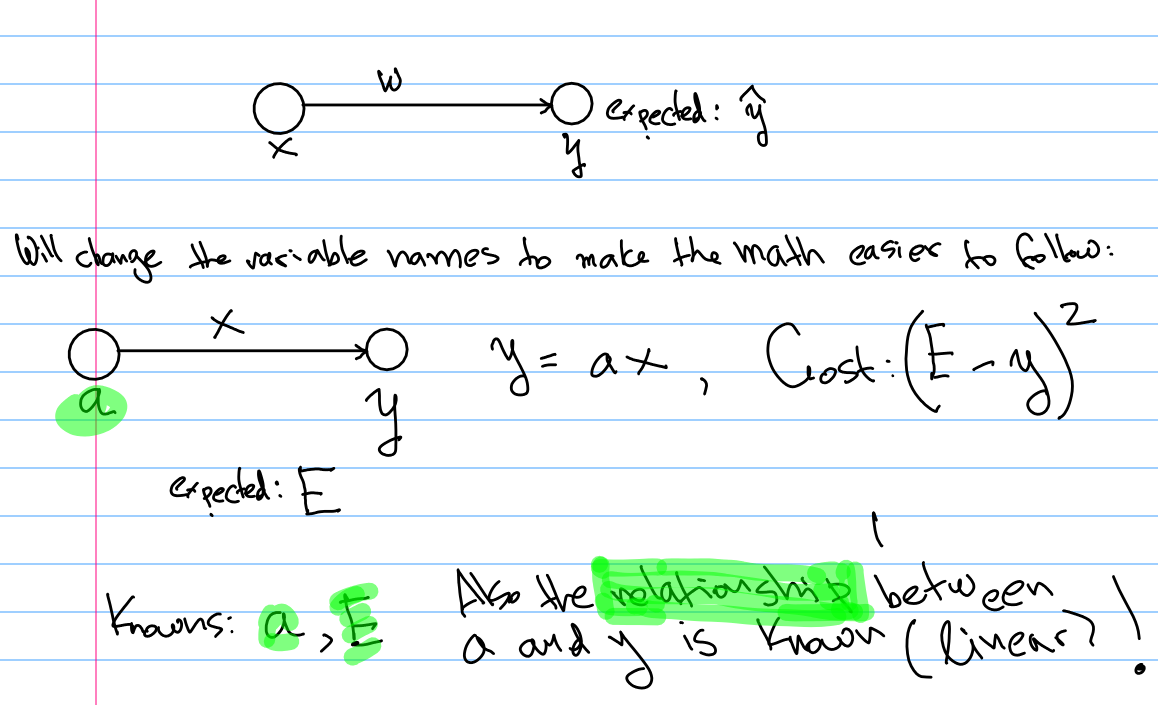 w
expected: ŷ
x
y
Will change the variable names to make the math easier to follow:
x
y = ax, Cost: (E - y)²
a
y
expected: E
Knowns: a, E
Also the relationship between
a and y is known (linear)!